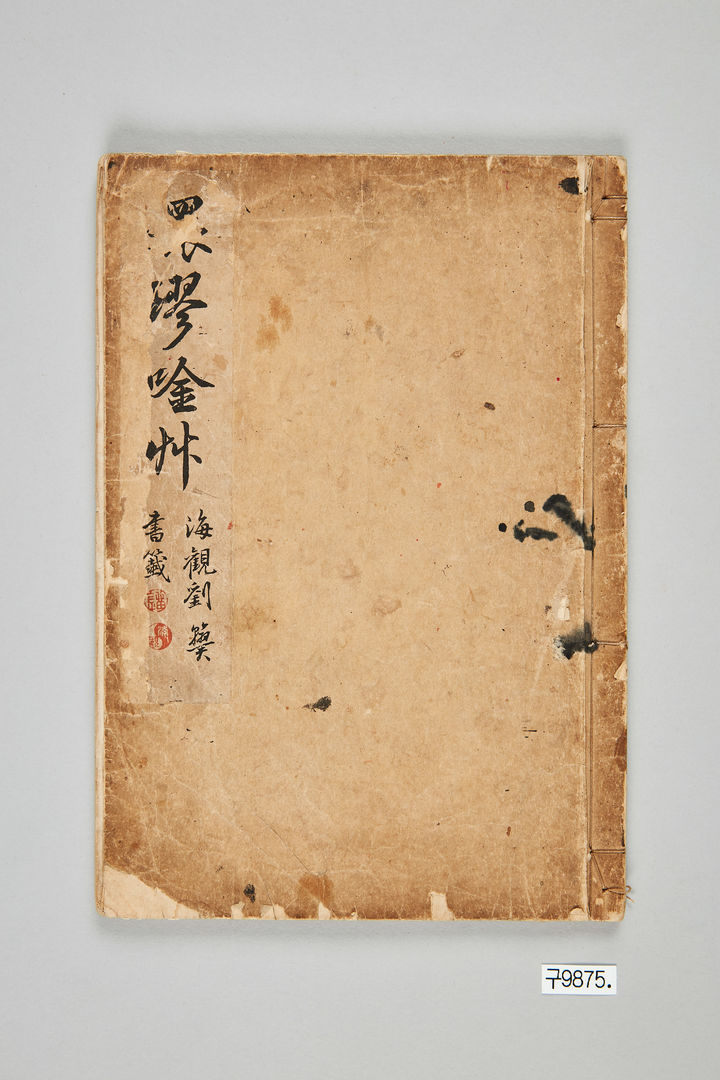 環璆唫艸
海觀劉
書籤
구9875.